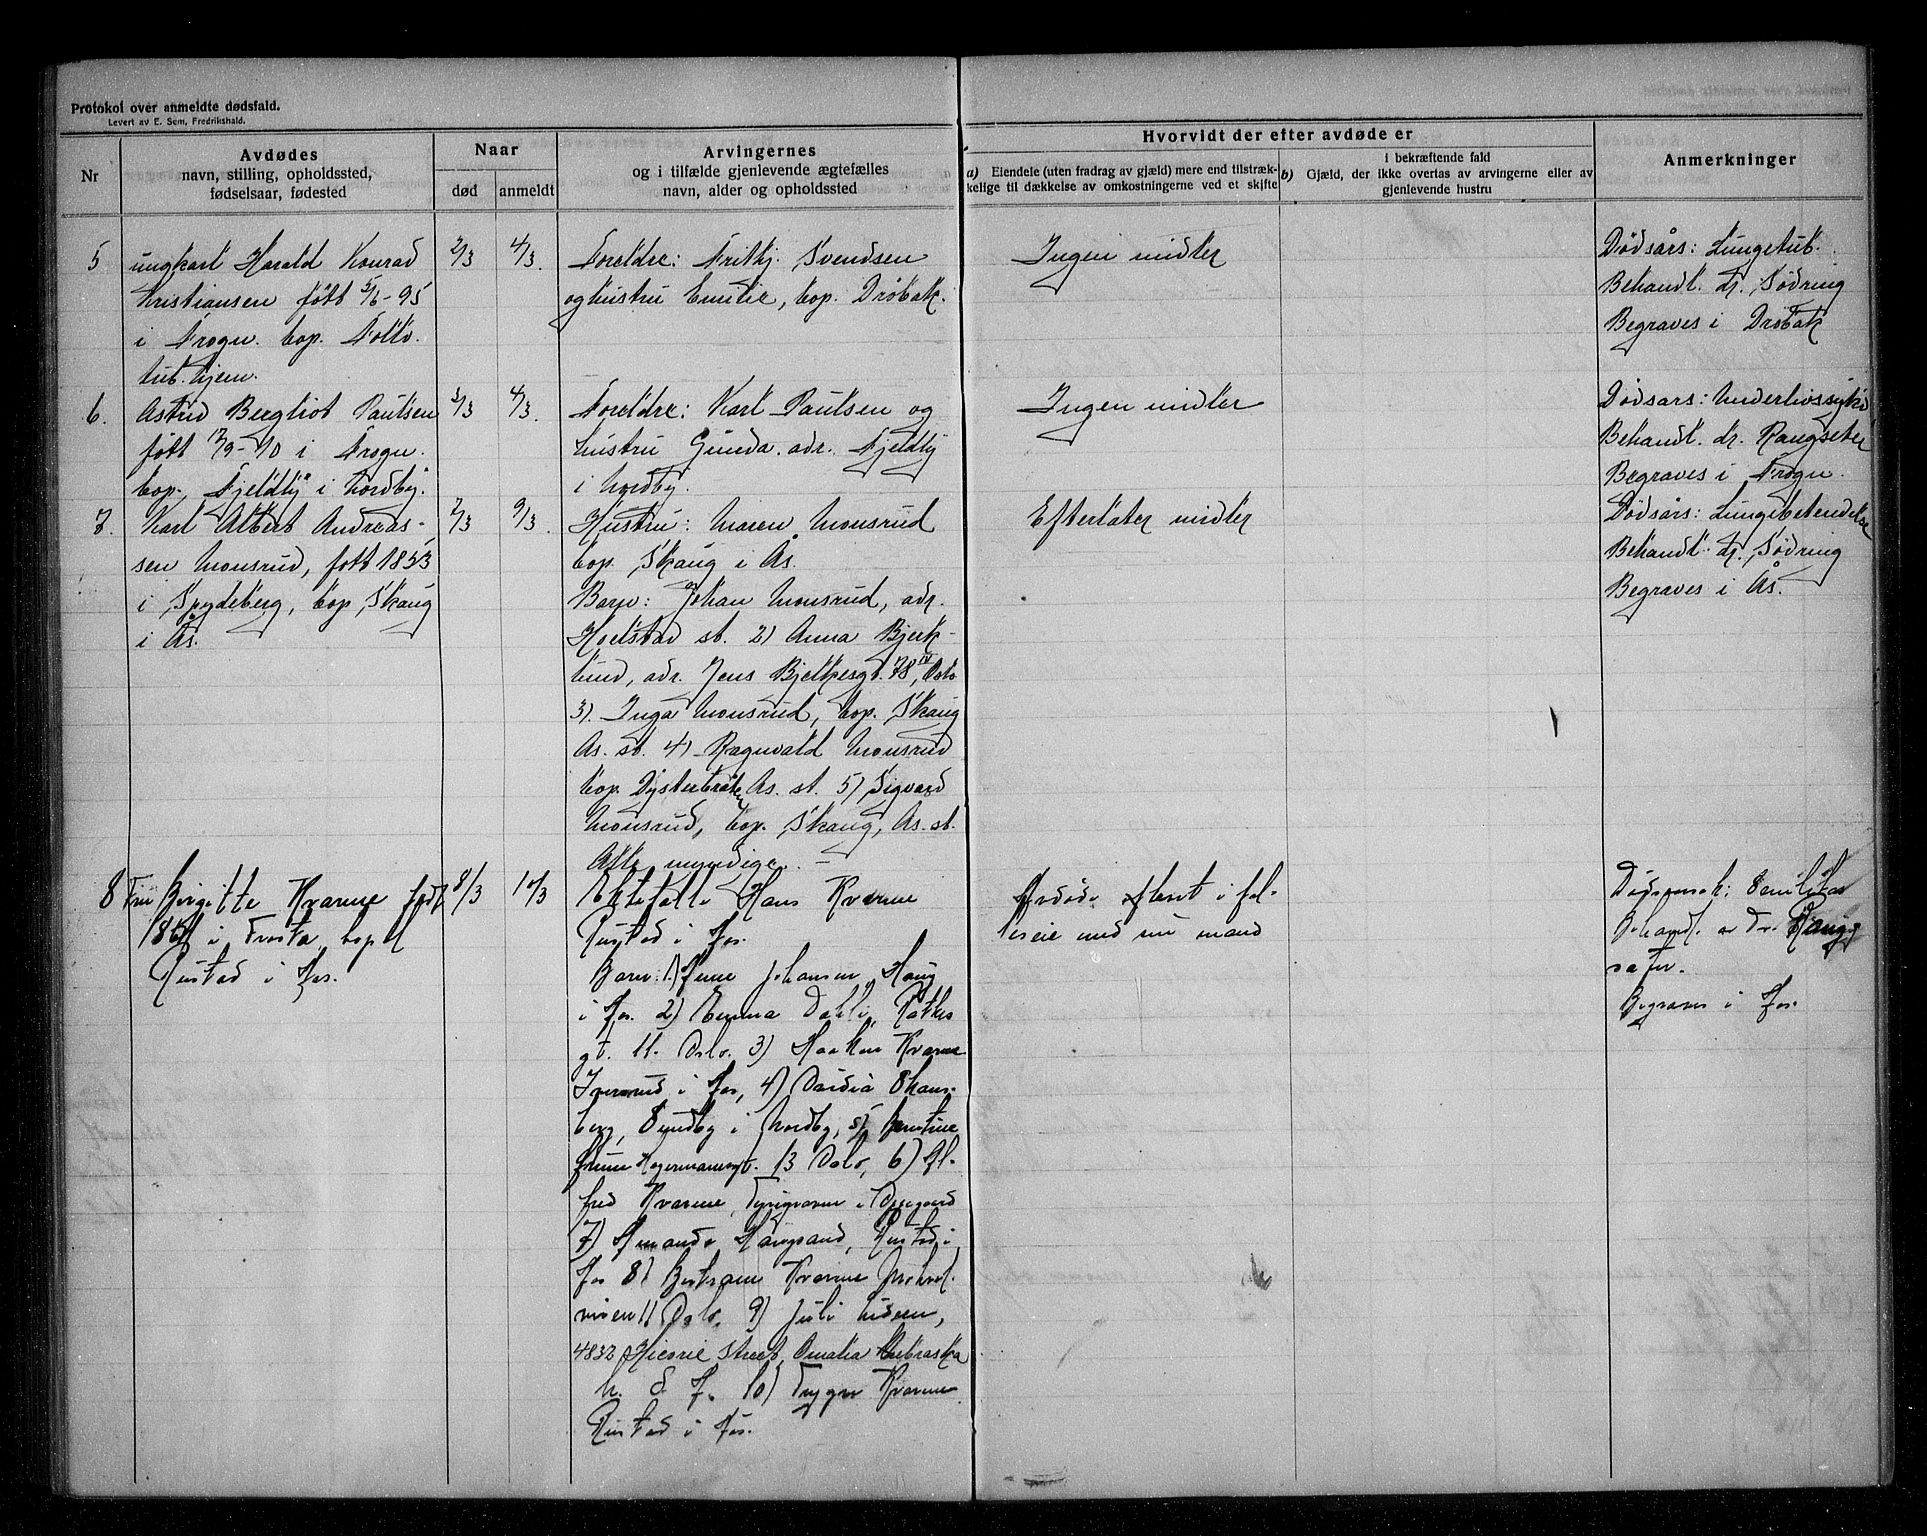 Protokol over anmeldte dødsfald.
Levert av E. Sem, Fredrikshald.
Nr
Avdødes
navn, stilling, opholdssted,
fødselsaar, fødested
Naar
død
anmeldt
Arvingernes
og i tilfælde gjenlevende ægtefælles
navn, alder og opholdssted
Hvorvidt der efter avdøde er
a) Eiendele (uten fradrag av gjæld) mere end tilstræk-
kelige til dækkelse av omkostningerne ved et skifte
i bekræftende fald
b) Gjæld, der ikke overtas av arvingerne eller av
gjenlevende hustru
Anmerkninger
5
ungkarl Harald Konrad
Kristiansen født 3/6-95
i Frogn. bop. Follo
tub. hjem.
2/3
4/3.
Foreldre: Frithj. Svendsen
og hustru Emilie, bop. Drøbak.
Ingen midler
Dødsårs: Lungetub.
Behandl. dr. Sødring
Begraves i Drøbak
6.
Astrid Bergliot Paulsen
født 17/9-10 i Frogn.
bop. "Fjeldly" i Nordby.
3/3
4/3.
Foreldre: Karl Paulsen og
hustru Gunda. adr. Fjeldly
i Nordby.
Ingen midler
Dødsårs: Underlivssykd
Behandl. dr. Rangseter
Begraves i Frogn.
7.
Karl Albert Andreas-
sen Monsrud, født 1853
i Spydeberg, bop Skaug
i Ås.
7/3
9/3.
Hustru: Maren Monsrud
bop. Skaug i Ås.
Barn: Johan Monsrud, adr.
Holstad st. 2) Anna Bjerk-
lund, adr. Jens Bjelkesgt. 78 IV, Oslo
3). Inga Monsrud, bop. Skaug
Ås. st. 4) Ragnvald Monsrud
bop. Dysterbråten Ås. st. 5) Sigvard
Monsrud, bop. Skaug, Ås. st.
Alle myndige. —
Efterlater midler
Dødsårs: Lungebetendelse
Behandl. dr. Sødring
Begraves i Ås.
8
Fru Birgitte Kvarme født
i Frosta, bopl
Rustad i Ås.
8/3
10/3
Ektefelle Hans Kvarme
Rustad i Ås.
Barn: 1) Johansen, Haug
i Ås. 2) Emma Dahl,
gt. 11. Oslo. 3) Haakon Kvarme
i Ås, 4) Skans-
berg, Sundby i Nordby, 5)
Hegermannsgt. 13 Oslo, 6) Al-
fred Kvarme, i Oppegaard
7) Amanda Rustad i
Ås 8) Bertram Kvarme
veien 11 Oslo, 9) Juli
4832 Hicorie Street, Omaha Nebraska
U. S. A. 10) Trygve Kvarme
Rustad i Ås.
Avdøde i fel-
leseie med sin mand
Dødsaarsak: Senilitas
Behandl. av Dr. Rang-
sæter.
Begraves i Ås.